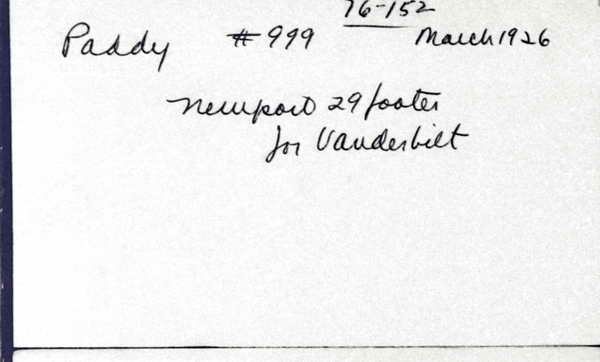 76-152
Paddy #999 March 1926
Newport 29 footer
for Vanderbilt